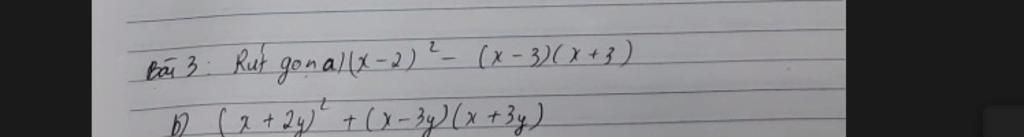 Bài 3: Rút gọn a) (x-2)² - (x-3)(x+3)
b) (x+2y)² + (x-3y)(x+3y)